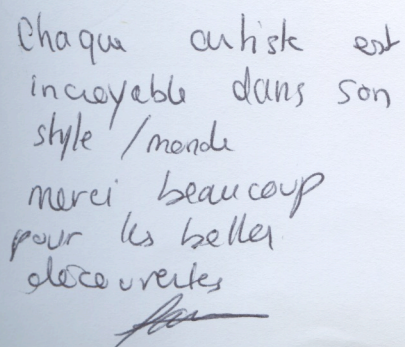 Chaque artiste est
incroyable dans son
style / monde
merci beaucoup
pour les belles
découvertes